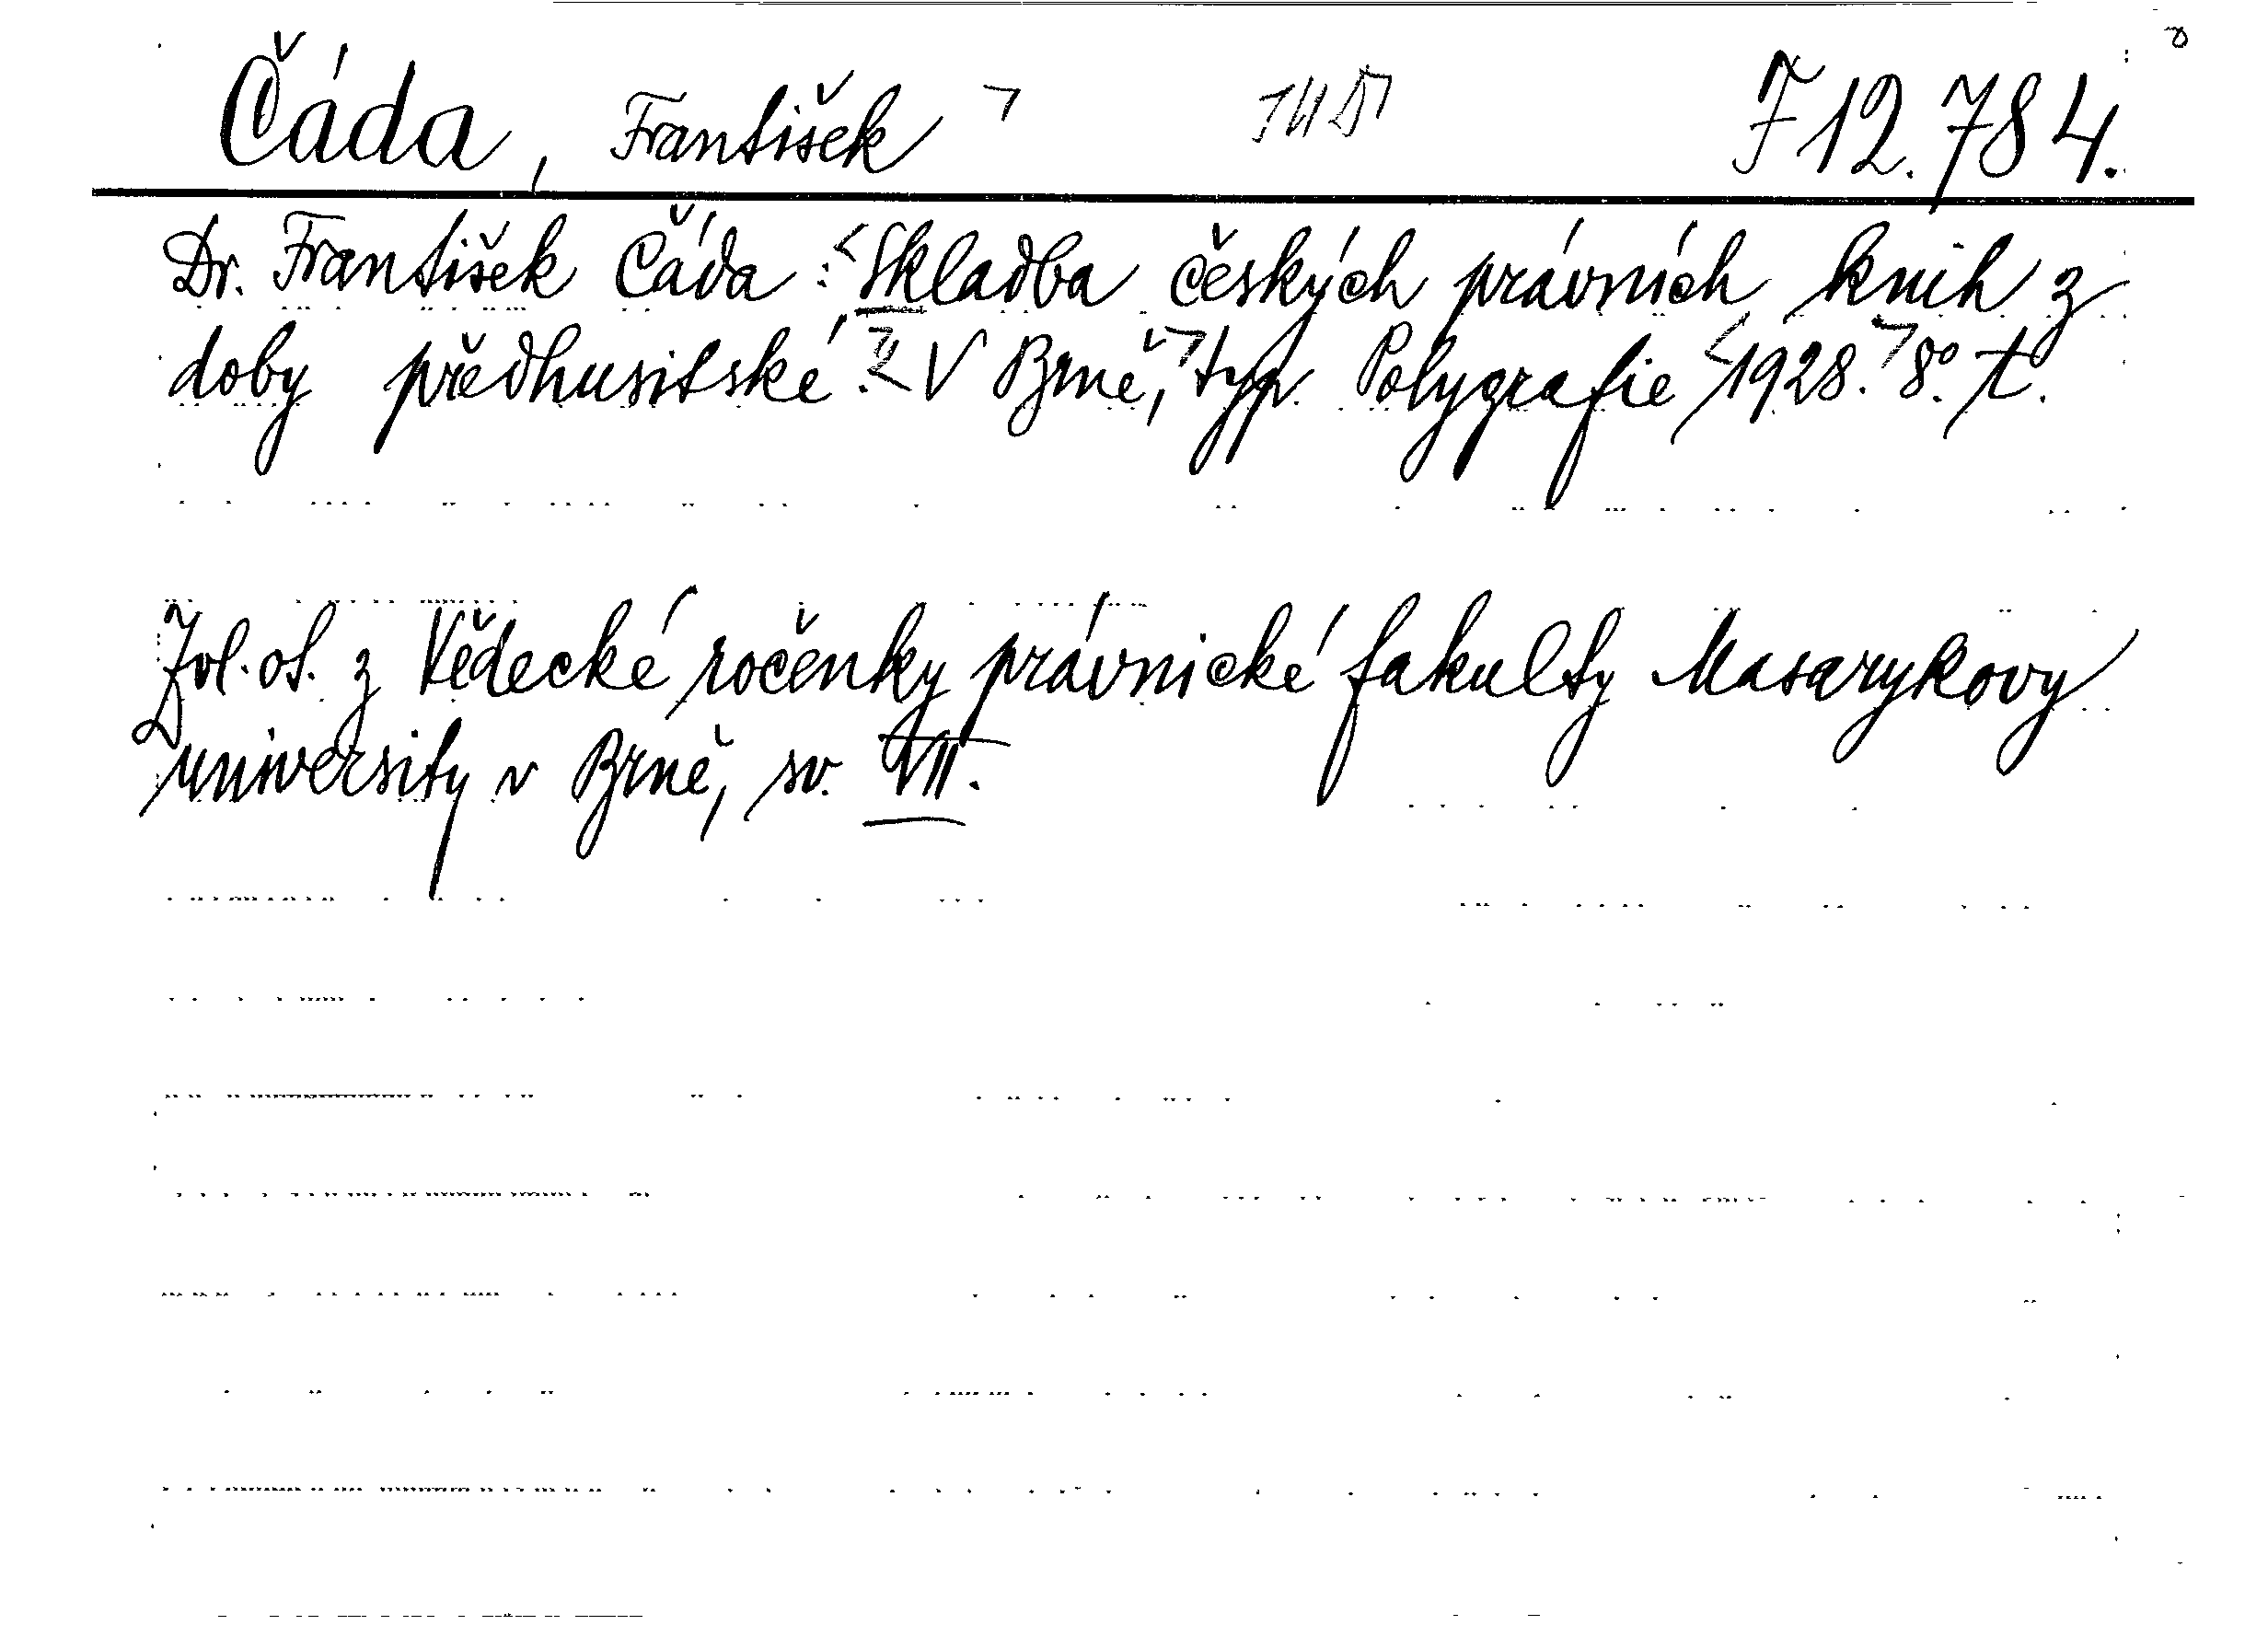 Čáda, František F 12.784.
Dr. František Čáda: Skladba českých právních knih z
doby předhusitské. V Brně, typ. Polygrafie 1928. 8°. t.
Zvl. ot. z Vědecké ročenky právnické fakulty Masarykovy
university v Brně, sv. VII.